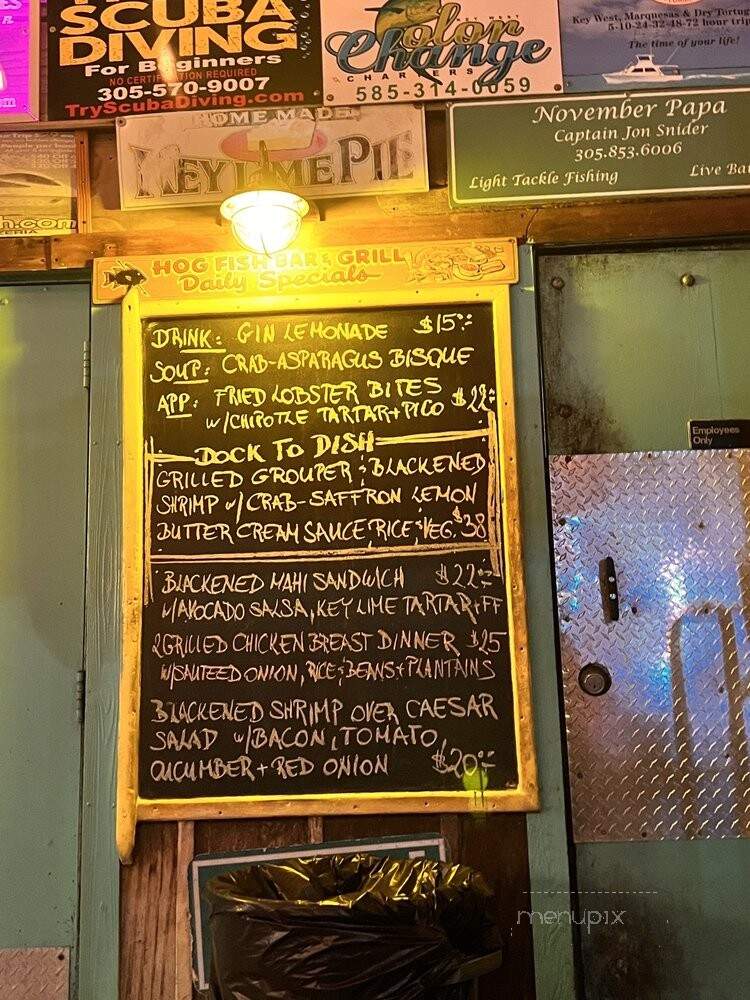 SCUBA
DIVING
For Beginners
NO CERTIFICATION REQUIRED
305-570-9007
TryScubaDiving.com
Color
Change
CHARTERS
585-314-0059
Key West, Marquesas & Dry Tortug
5-10-24-32-48-72 hour tri
The time of your life!
HOME MADE
KEY LIME PIE
November Papa
Captain Jon Snider
305.853.6006
Light Tackle Fishing
Live Ba
HOG FISH BAR & GRILL
Daily Specials
DRINK: GIN LEMONADE $15
SOUP: CRAB-ASPARAGUS BISQUE
APP: FRIED LOBSTER BITES
W/CHIPOTLE TARTAR+PICO $22
DOCK TO DISH
GRILLED GROUPER & BLACKENED
SHRIMP W/ CRAB-SAFFRON LEMON
BUTTER CREAM SAUCE, RICE & VEG. $38
BLACKENED MAHI SANDWICH $22
W/AVOCADO SALSA, KEY LIME TARTAR+FF
2 GRILLED CHICKEN BREAST DINNER $25
W/SAUTEED ONION, RICE & BEANS + PLANTAINS
BLACKENED SHRIMP OVER CAESAR
SALAD W/BACON, TOMATO,
CUCUMBER + RED ONION $20
Employees
Only
menupix